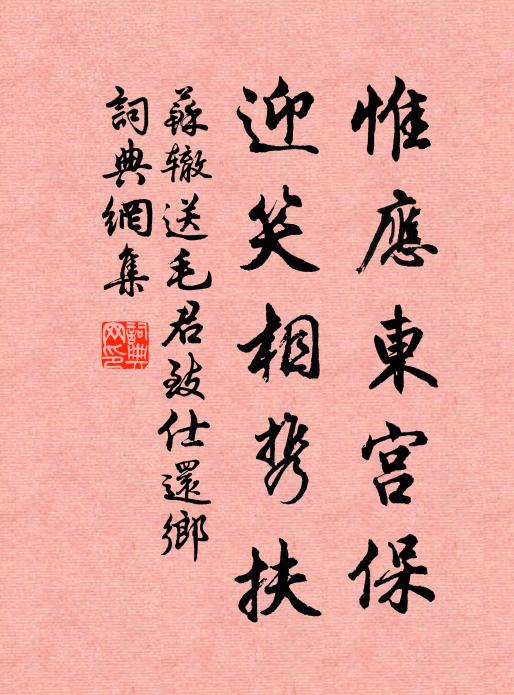 惟應東宮保
迎笑相携扶
蘇轍送毛君致仕還鄉
詞典網集
詞典網印